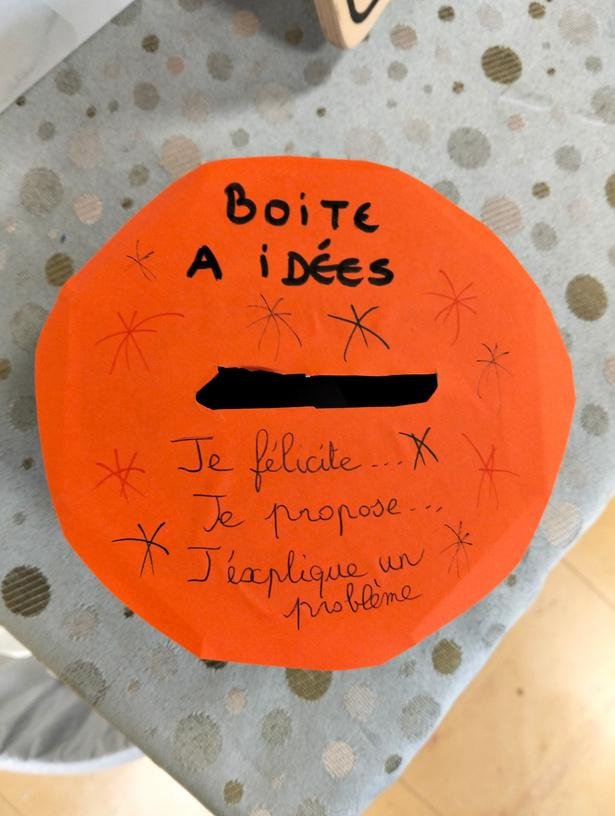 BOiTE
A iDÉES
Je félicite...
Je propose...
J'éxplique un
problème